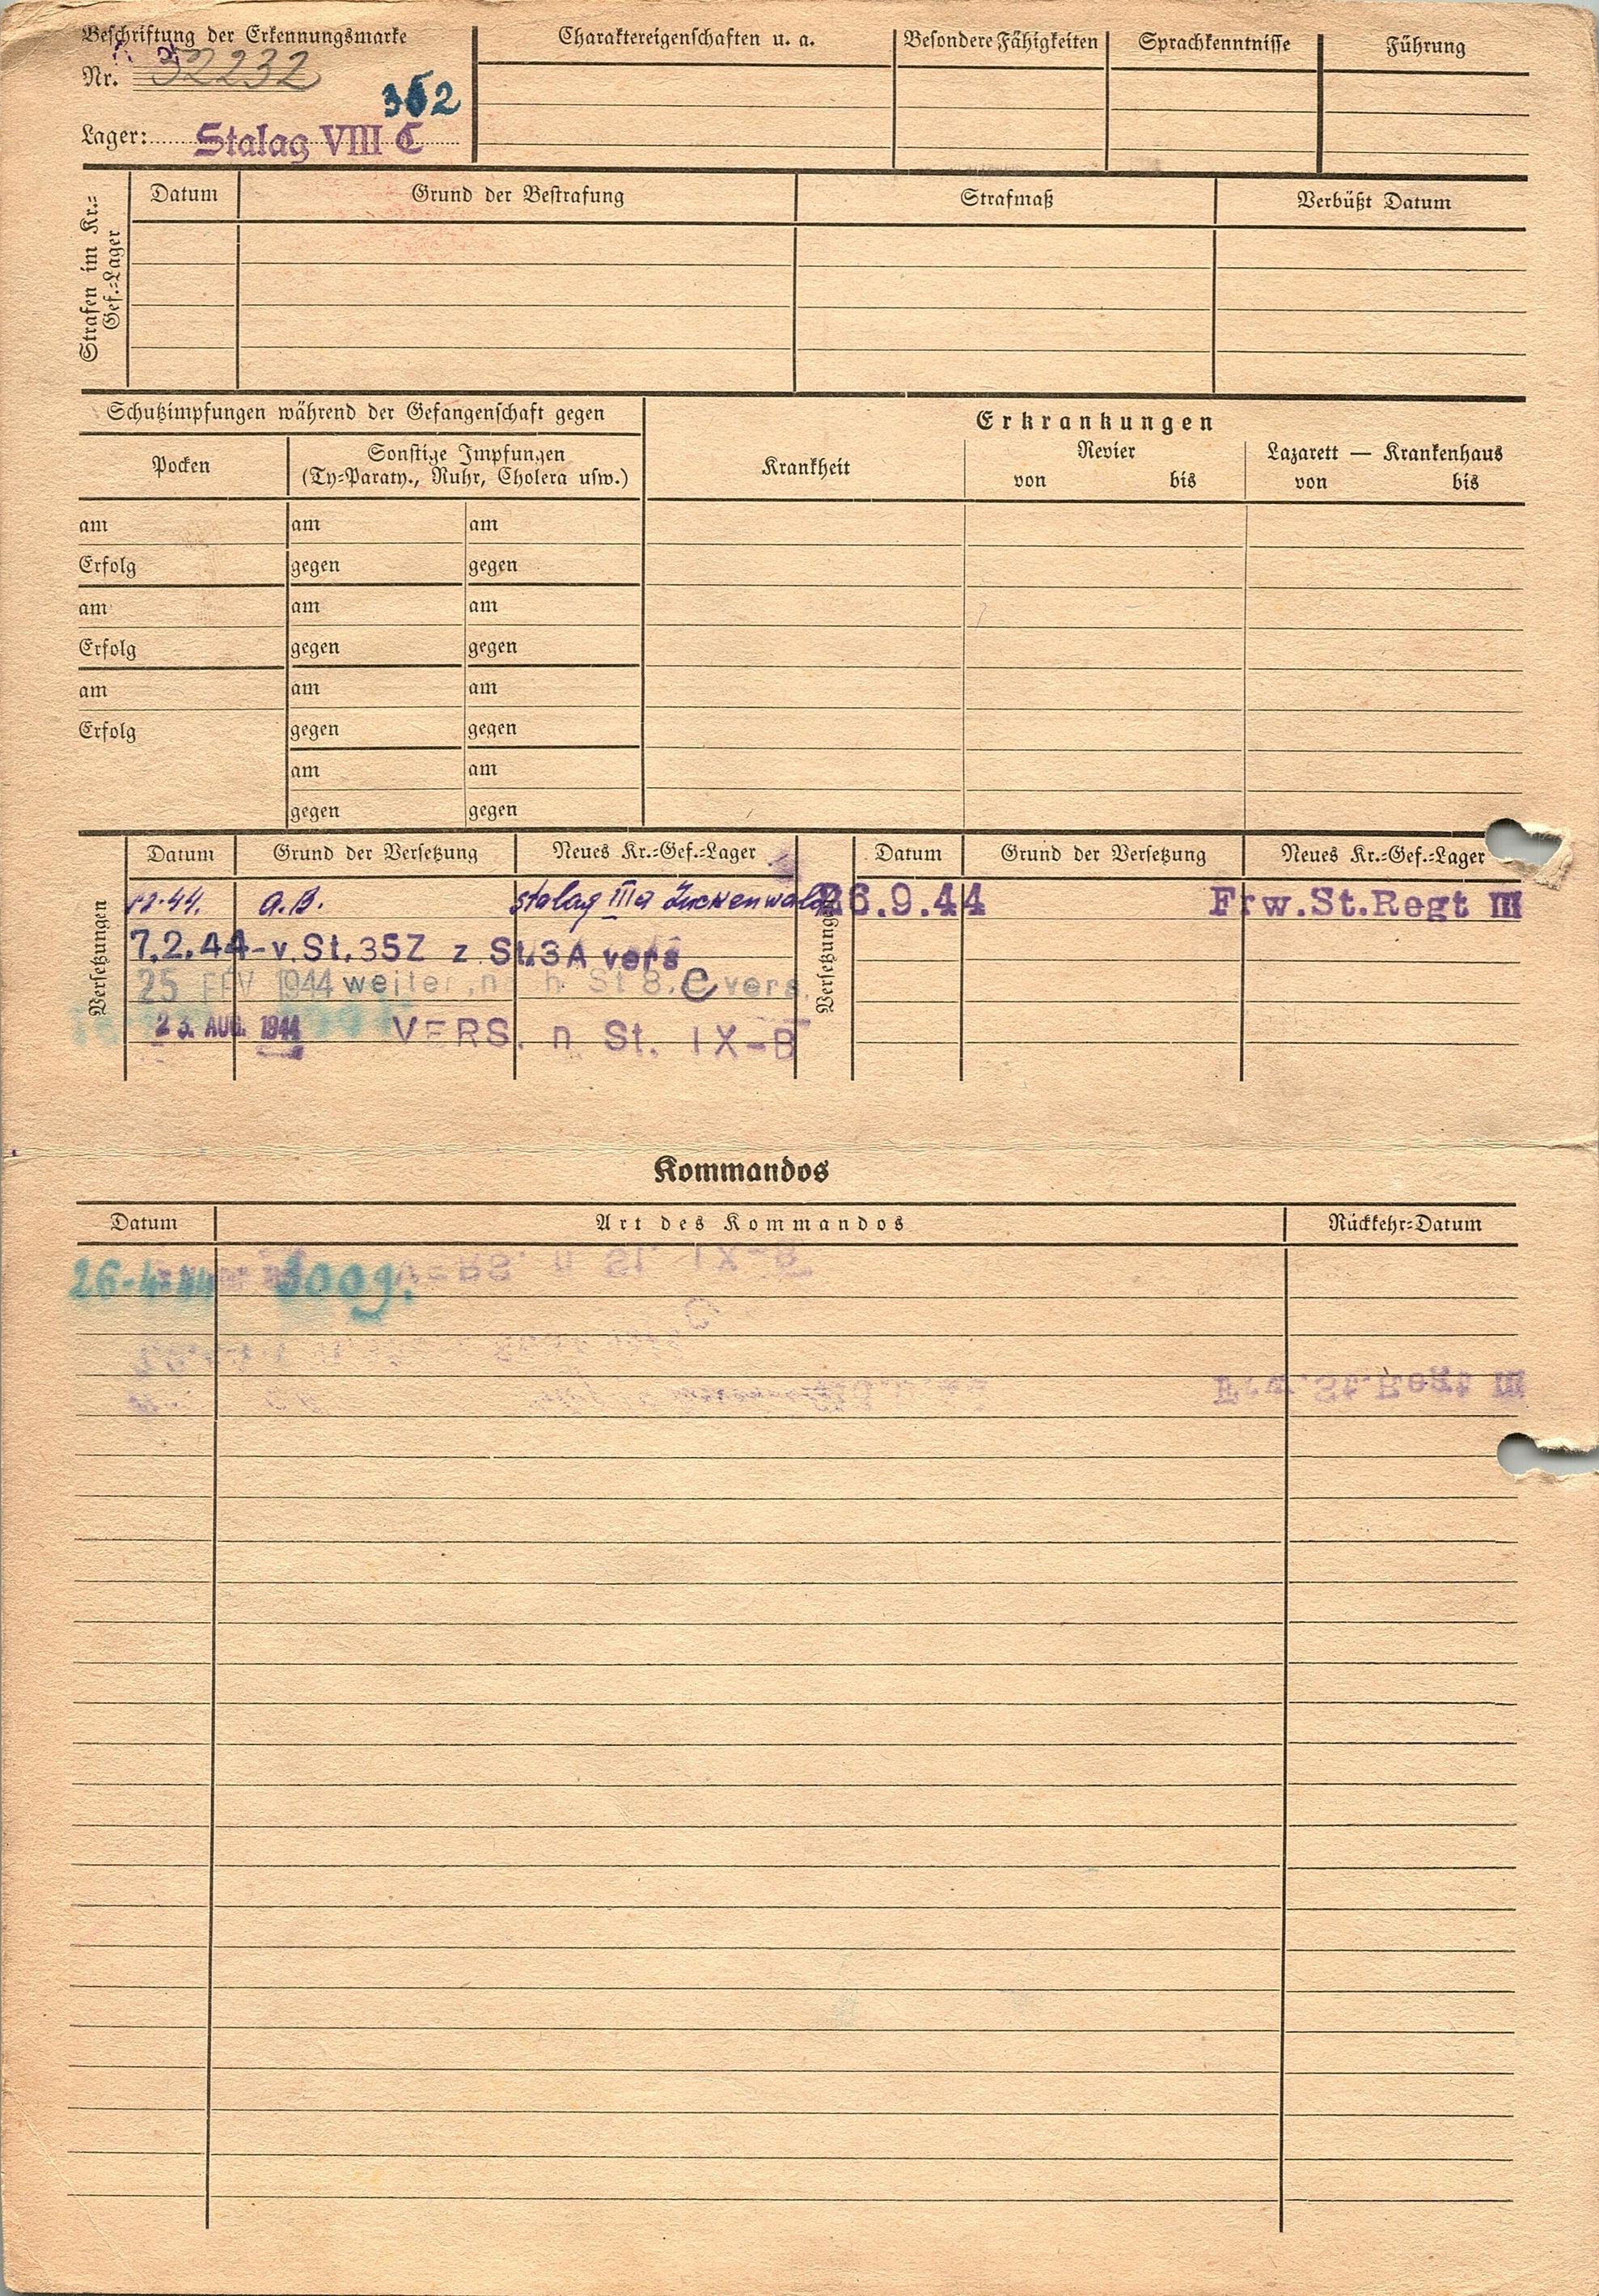 Beschriftung der Erkennungsmarke
Nr. 52232
352
Lager: Stalag VIII C
Charaktereigenschaften u. a.
Besondere Fähigkeiten
Sprachkenntnisse
Führung
Strafen im Kr.-Gef.-Lager
Datum
Grund der Bestrafung
Strafmaß
Verbüßt Datum
Schutzimpfungen während der Gefangenschaft gegen
Pocken
Sonstige Impfungen
(Ty-Paraty., Ruhr, Cholera usw.)
Erkrankungen
Krankheit
Revier
von bis
Lazarett — Krankenhaus
von bis
am am am
Erfolg gegen gegen
am am am
Erfolg gegen gegen
am am am
Erfolg gegen gegen
am am
gegen gegen
Versetzungen
Datum Grund der Versetzung Neues Kr.-Gef.-Lager
2.44. a.B. Stalag III a Luckenwald
7.2.44-v.St.35Z z St.3A vers
25 FEV 1944 weiter n h St 8.C vers.
23. AUG. 1944 VERS. n St. IX-B
Versetzungen
Datum Grund der Versetzung Neues Kr.-Gef.-Lager
26.9.44 Frw.St.Regt III
Kommandos
Datum Art des Kommandos Rückkehr-Datum
26-4-44 3009.